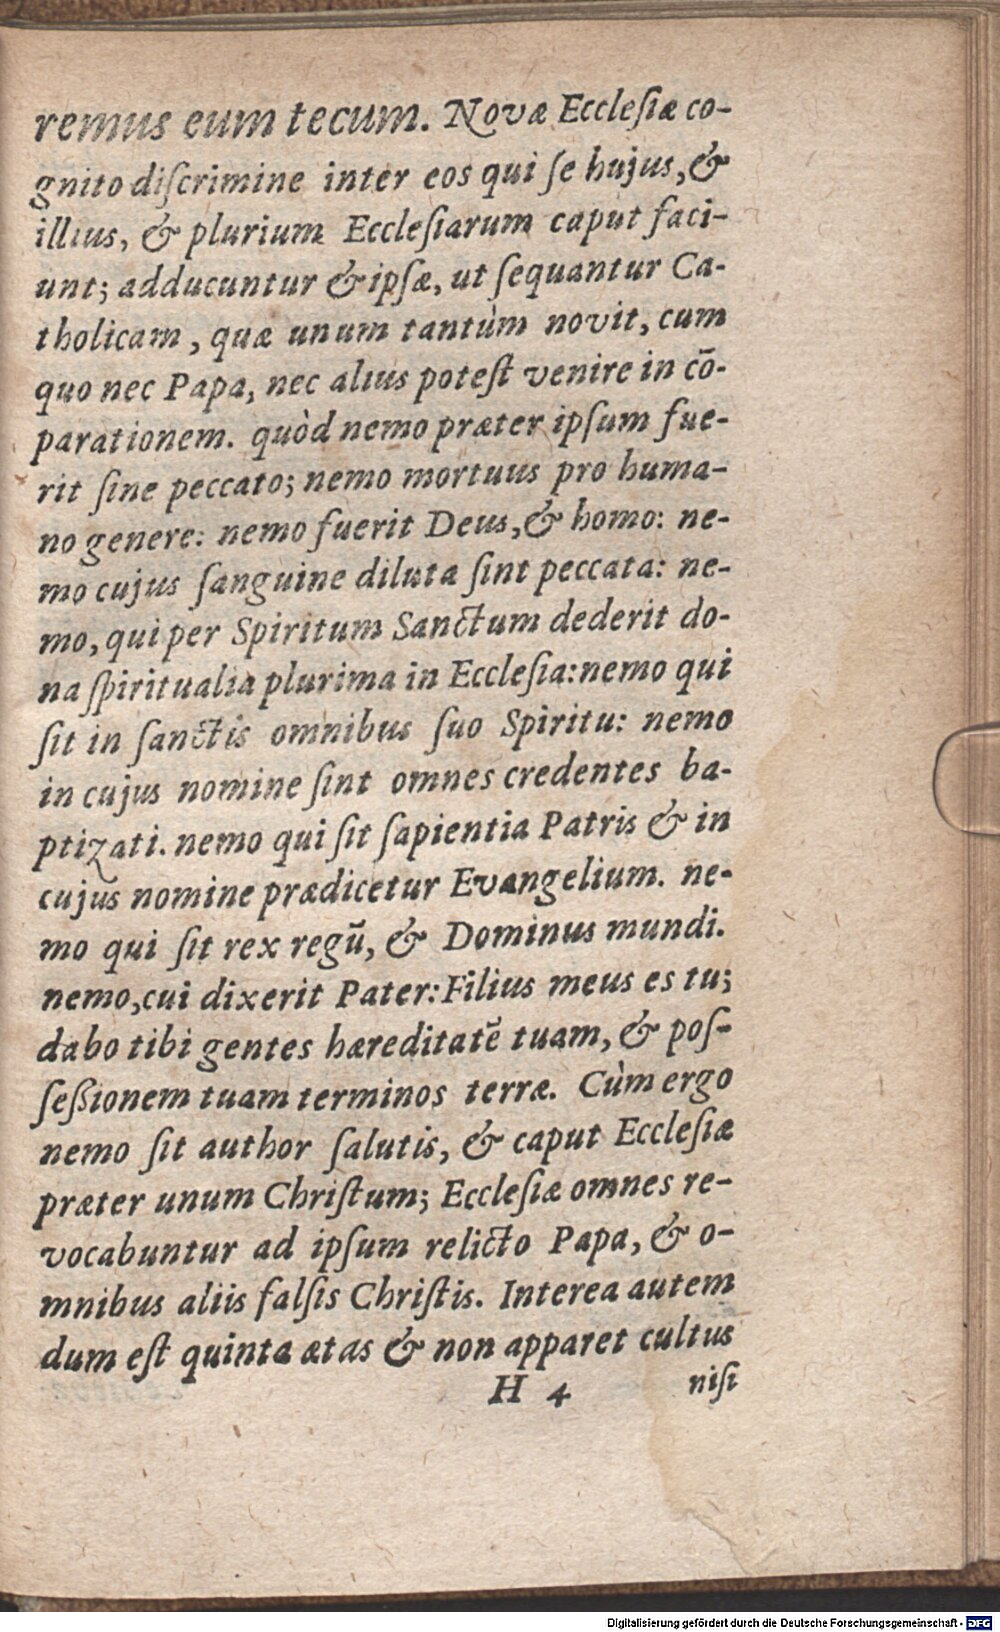 remus eum tecum. Novæ Eccleſiæ co-
gnito diſcrimine inter eos qui ſe hujus, &
illius, & plurium Eccleſiarum caput faci-
unt; adducuntur & ipſæ, ut ſequantur Ca-
tholicam, quæ unum tantùm novit, cum
quo nec Papa, nec alius poteſt venire in cō-
parationem. quòd nemo præter ipſum fue-
rit ſine peccato; nemo mortuus pro huma-
no genere: nemo fuerit Deus, & homo: ne-
mo cujus ſanguine diluta ſint peccata: ne-
mo, qui per Spiritum Sanctum dederit do-
na ſpiritualia plurima in Eccleſia: nemo qui
ſit in ſanctis omnibus ſuo Spiritu: nemo
in cujus nomine ſint omnes credentes ba-
ptizati. nemo qui ſit ſapientia Patris & in
cujus nomine prædicetur Evangelium. ne-
mo qui ſit rex regū, & Dominus mundi.
nemo, cui dixerit Pater: Filius meus es tu;
dabo tibi gentes hæreditatē tuam, & poſ-
ſeßionem tuam terminos terræ. Cùm ergo
nemo ſit author ſalutis, & caput Eccleſiæ
præter unum Chriſtum; Eccleſiæ omnes re-
vocabuntur ad ipſum relicto Papa, & o-
mnibus aliis falſis Chriſtis. Interea autem
dum eſt quinta ætas & non apparet cultus
H 4 niſi
Digitalisierung gefördert durch die Deutsche Forschungsgemeinschaft - DFG